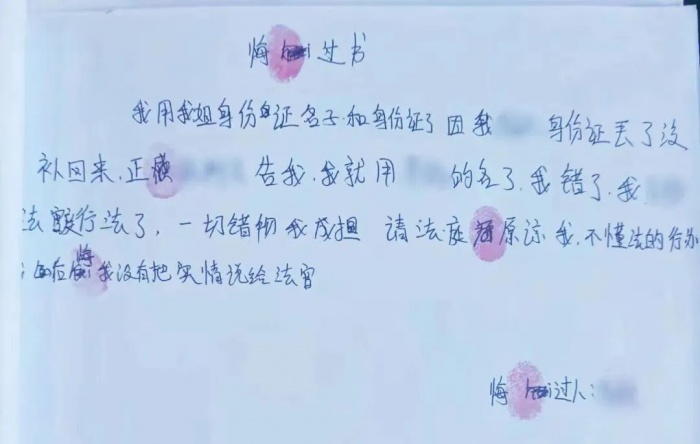 悔过书
我用我姐身份证名子和身份证了因我 身份证丢了没
补回来,正 告我,我就用 的名了,我错了,我
法 行法了,一切错 我成担 请法庭 原谅我,不懂法的行
后悔我没有把实情说给法官
悔过人: